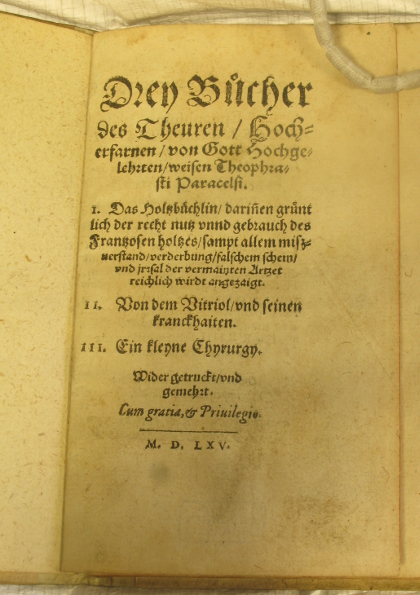 Drey Bůcher
des Theuren / Hoch=
erfarnen / von Gott Hochge=
lehrten / weisen Theophra=
sti Paracelsi.
I. Das Holtzbůchlin / dariñen grůnt
lich der recht nutz vnnd gebrauch des
Frantzosen holtzes / sampt allem misz=
uerstand / verderbung / falschem schein /
vnd jrsal der vermainten Artzet
reichlich wirdt angezaigt.
II. Von dem Vitriol / vnd seinen
kranckhaiten.
III. Ein kleyne Chyrurgy.
Wider getruckt / vnd
gemehrt.
Cum gratia, & Priuilegio.
M. D. LXV.